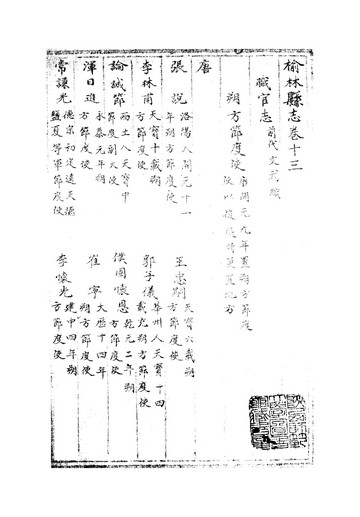 榆林縣志卷十三
職官志 前代文武職
朔方節度使 唐開元九年置朔方節度
使
唐
張說 洛陽人開元十一
年朔方節度使
王忠嗣 天寶六載朔
方節度使
李林甫 天寶十載朔
方節度使
郭子儀 華州人天寶十四
載充朔方節度使
論誠節 西土人天寶中
節度副大使
僕固懷恩 乾元二年朔
方節度使
渾日進 永泰元年朔
方節度使
崔寧 大曆十四年
朔方節度使
常謙光 德宗初定遠天德
鹽夏等軍節度使
李懷光 建中四年朔
方節度使